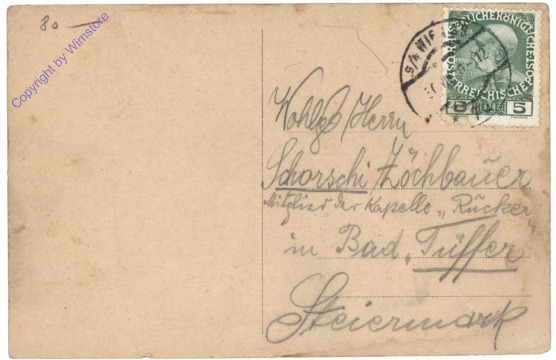 80
Copyright by Wimstore
9/2 WIEN
KAISERLICHE KÖNIGLICHE
ÖSTERREICHISCHE
5 5
Wohlg Herrn
Schorschi Zöchbauer
Mitglied der Kapelle „Rücker"
in Bad „Tüffer"
Steiermark